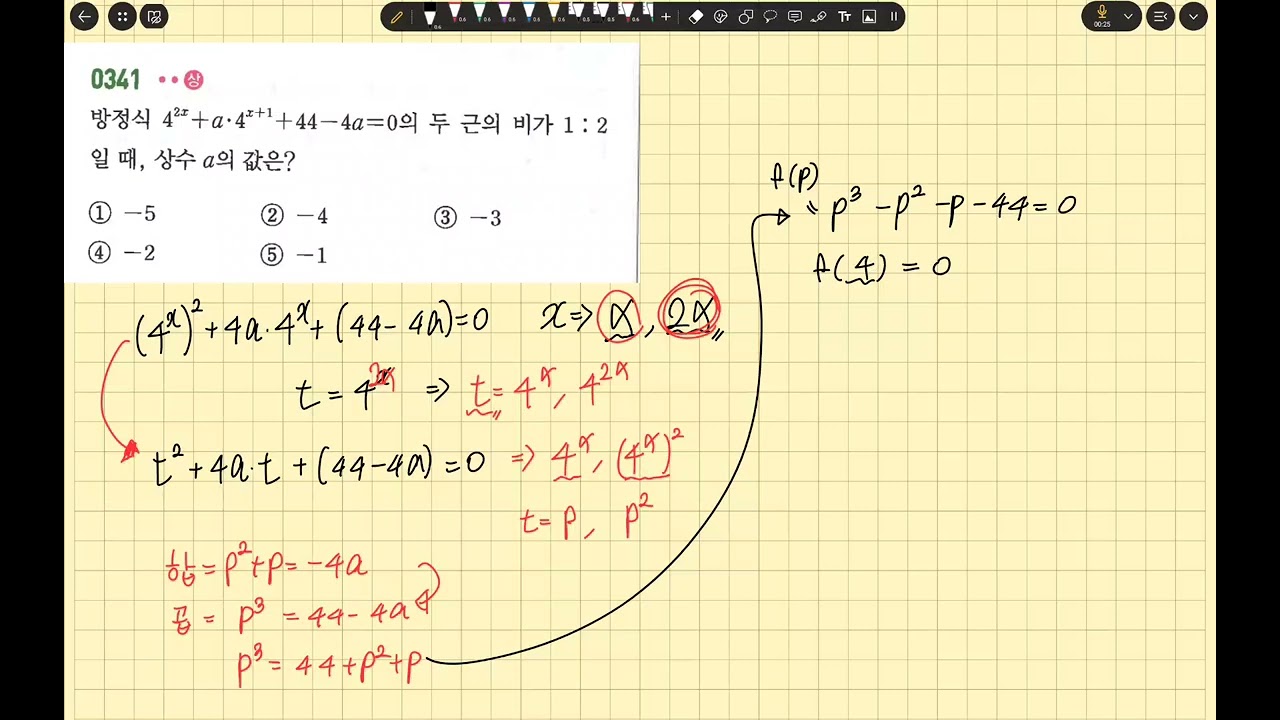 00:25
0341 상
방정식 4^{2x}+a·4^{x+1}+44-4a=0의 두 근의 비가 1 : 2
일 때, 상수 a의 값은?
① -5 ② -4 ③ -3
④ -2 ⑤ -1
(4^x)^2+4a·4^x+(44-4a)=0 x⇒α, 2α
t=4^x ⇒ t=4^α, 4^{2α}
t^2+4a·t+(44-4a)=0 ⇒ 4^α, (4^α)^2
t=p, p^2
합=p^2+p=-4a
곱=p^3=44-4a
p^3=44+p^2+p
f(p)
p^3-p^2-p-44=0
f(4)=0